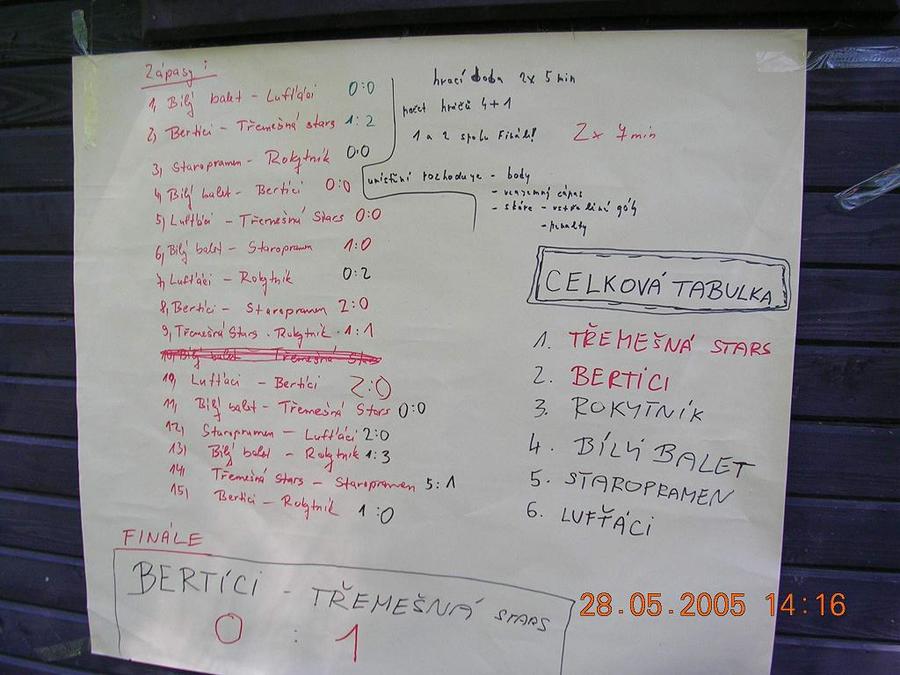 Zápasy:
1, Bílý balet - Lufťáci 0:0
2, Bertíci - Třemešná stars 1:2
3, Staropramen - Rokytník 0:0
4, Bílý balet - Bertíci 0:0
5, Lufťáci - Třemešná Stars 0:0
6, Bílý balet - Staropramen 1:0
7, Lufťáci - Rokytník 0:2
8, Bertíci - Staropramen 2:0
9, Třemešná Stars - Rokytník 1:1
10, Bílý balet - Třemešná Stars
10, Lufťáci - Bertíci 2:0
11, Bílý balet - Třemešná Stars 0:0
12, Staropramen - Lufťáci 2:0
13, Bílý balet - Rokytník 1:3
14, Třemešná stars - Staropramen 5:1
15, Bertíci - Rokytník 1:0
hrací doba 2x 5 min
počet hráčů 4+1
1 a 2 spolu Finále! 2x 7 min
umístění rozhoduje - body
- vzájemný zápas
- skóre - vstřelené góly
- penalty
CELKOVÁ TABULKA
1. TŘEMEŠNÁ STARS
2. BERTÍCI
3. ROKYTNÍK
4. BÍLÝ BALET
5. STAROPRAMEN
6. LUFŤÁCI
FINÁLE
BERTÍCI - TŘEMEŠNÁ STARS
0 : 1
28.05.2005 14:16